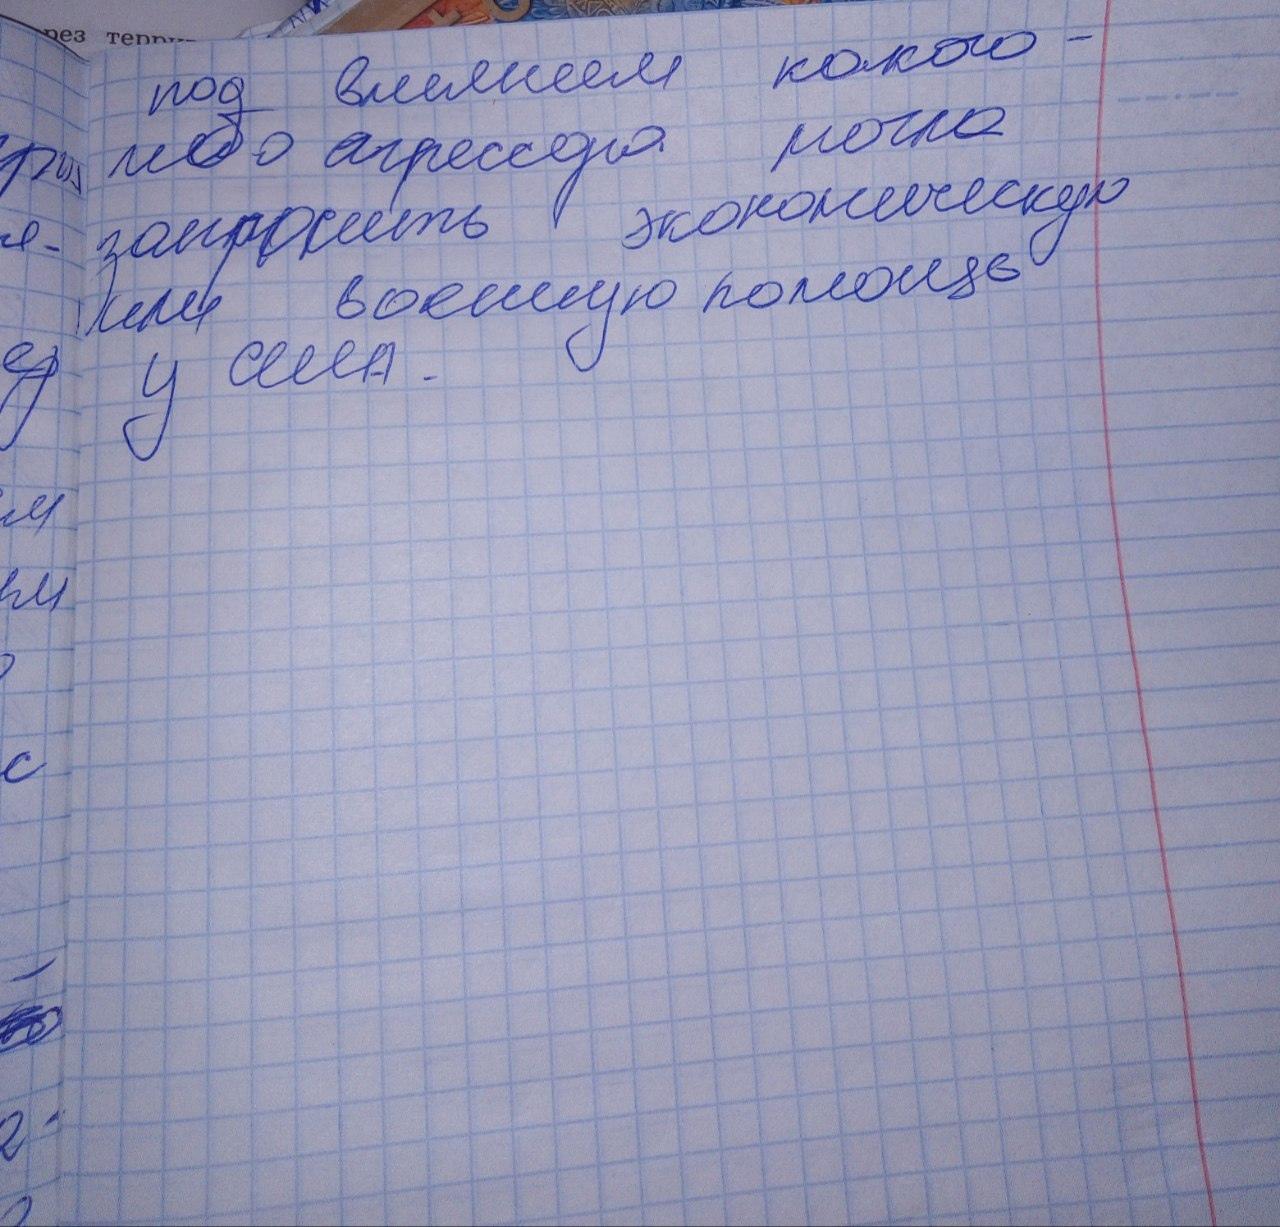 рез терри
под влиянием какого-
либо агрессора могла
запросить экономическую
или военную помощь
у США.